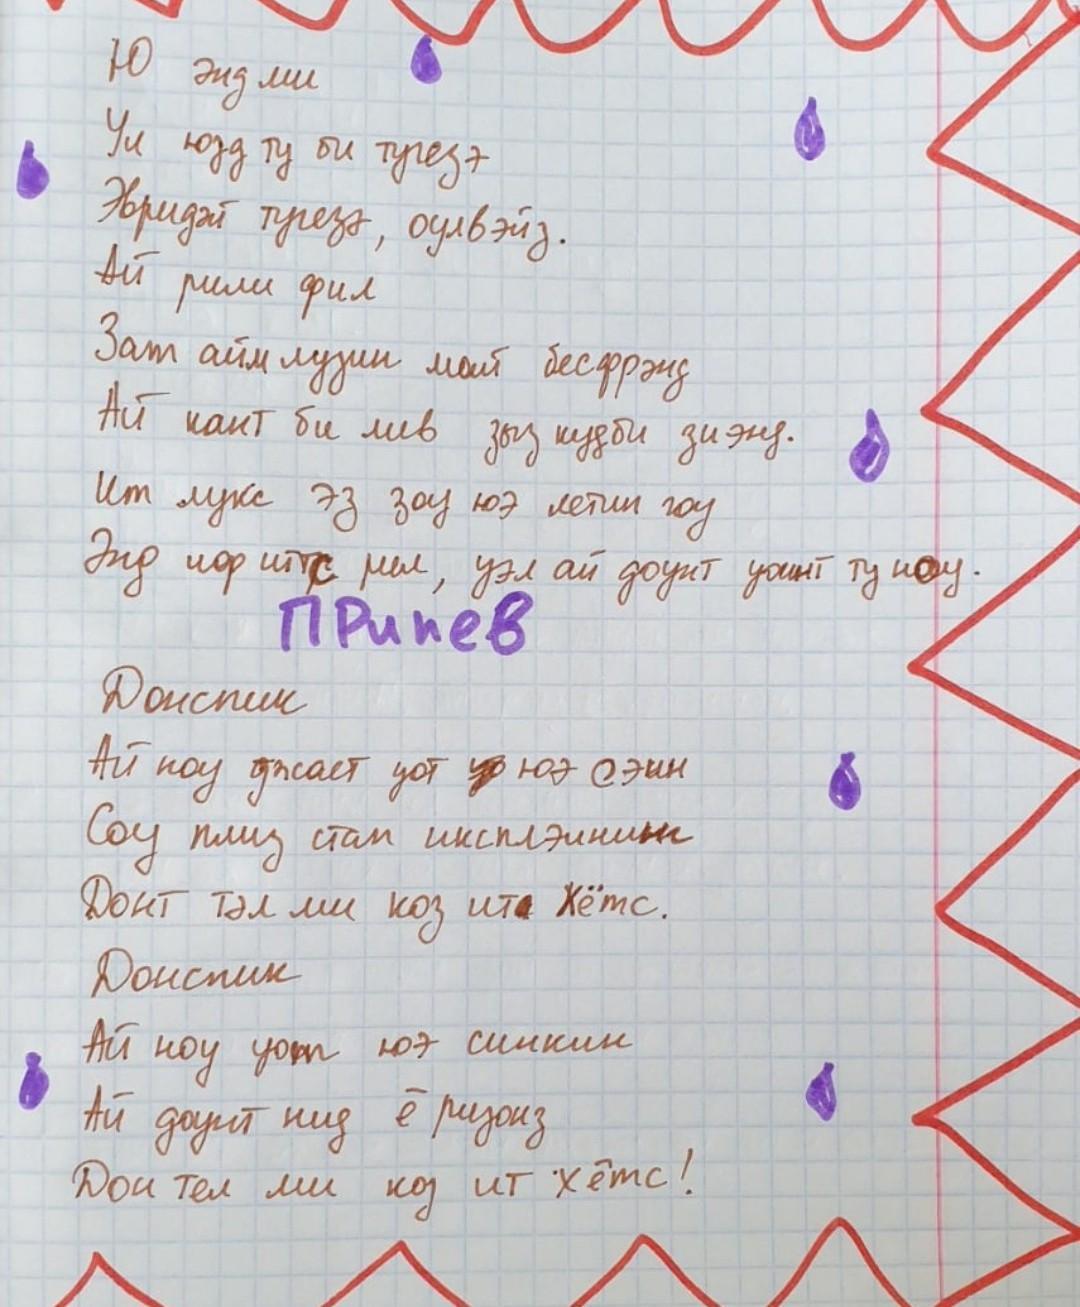 Ю энд ми
Ул юзд ту би тугезэ
Эвридэй тугезэ, оулвэйз.
Ай рили фил
Зат айм лузин май бесфрэнд
Ай кант би лив зыз кудби зи энд.
Ит лукс эз зоу юэ летин гоу
Энд иф итс рил, уэл ай доунт уант ту ноу.
ПРипев
Донспик
Ай ноу джаст уот юэ сэин
Соу плиз стап иксплэинин
Донт тэл ми коз ит хётс.
Донспик
Ай ноу уот юэ синкин
Ай доунт нид ё ризонз
Дон тел ми коз ит хётс!